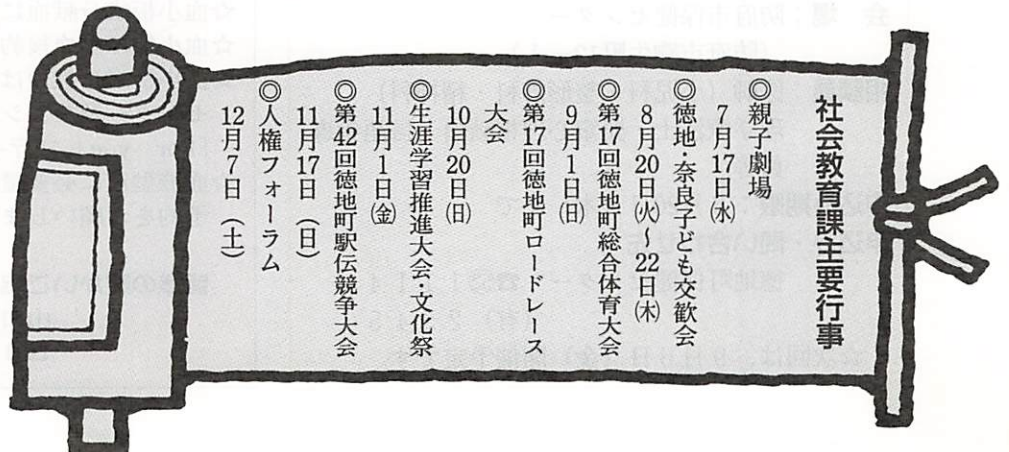 社会教育課主要行事
◎親子劇場
7月17日㈬
◎徳地・奈良子ども交歓会
8月20日㈫〜22日㈭
◎第17回徳地町総合体育大会
9月1日㈰
◎第17回徳地町ロードレース
大会
10月20日㈰
◎生涯学習推進大会、文化祭
11月1日㈮
◎第42回徳地町駅伝競争大会
11月17日（日）
◎人権フォーラム
12月7日（土）